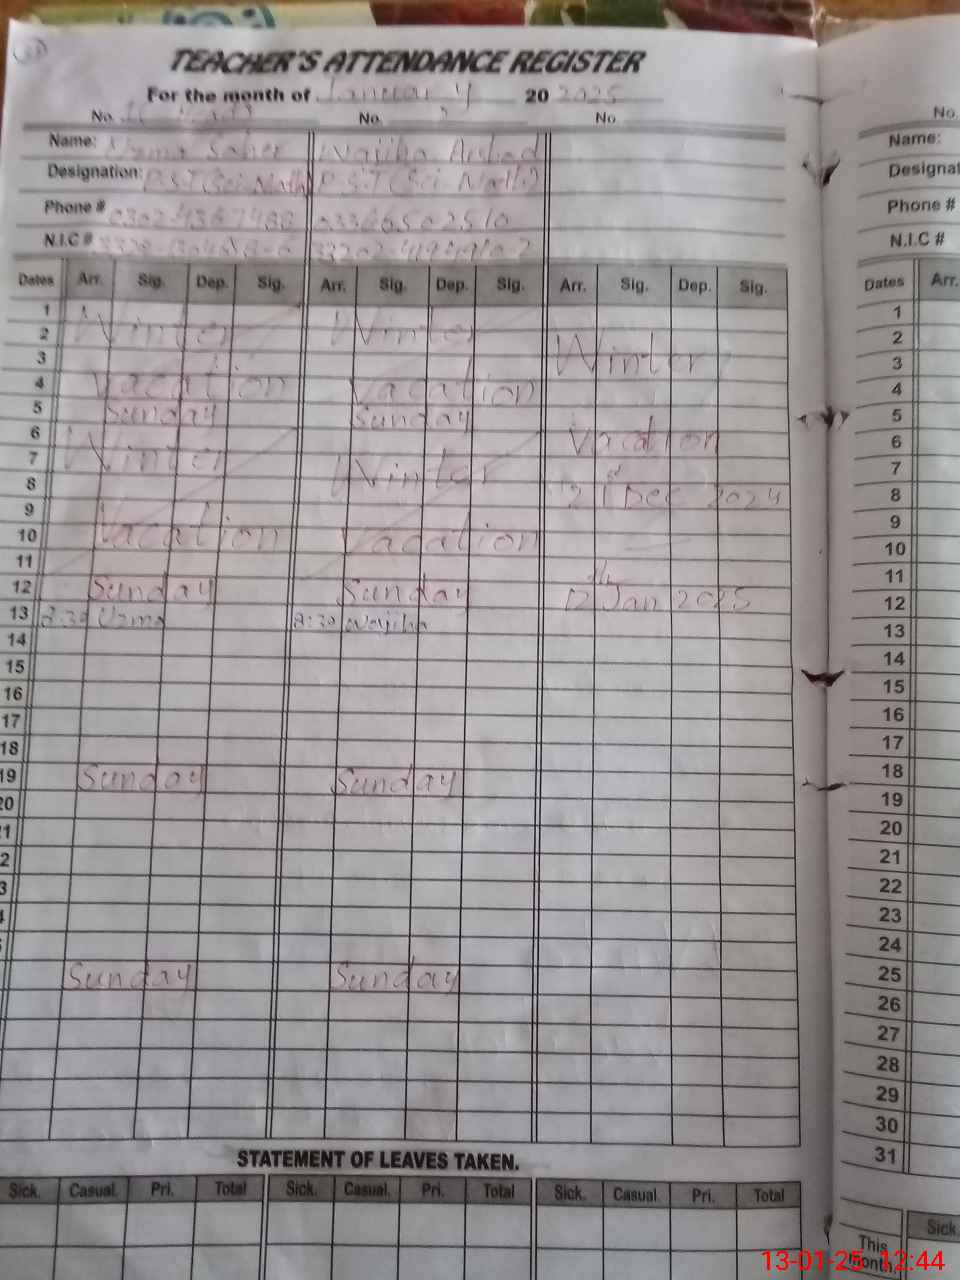 TEACHER'S ATTENDANCE REGISTER
For the month of January 20 2025
No. No. No.
Name: Uzma Saher Wajiha Arshad
Designation: P.S.T (Sci-Math) P.S.T (Sci-Math)
Phone #
N.I.C #
Dates Arr. Sig. Dep. Sig. Arr. Sig. Dep. Sig. Arr. Sig. Dep. Sig.
1
2 Winter Winter
3 Winter
4 Vacation Vacation
5 Sunday Sunday
6 Vacation
7 Winter Winter
8 21st Dec 2024
9
10 Vacation Vacation
11
12 Sunday Sunday 12th Jan 2025
13 8:30 Uzma 8:30 Wajiha
14
15
16
17
18
19 Sunday Sunday
20
Sunday Sunday
STATEMENT OF LEAVES TAKEN.
Sick. Casual. Pri. Total Sick. Casual. Pri. Total Sick. Casual. Pri. Total
No.
Name:
Phone #
N.I.C #
Dates Arr.
1
2
3
4
5
6
7
8
9
10
11
12
13
14
15
16
17
18
19
20
21
22
23
24
25
26
27
28
29
30
31
Sick.
This
month.
13-01-25 12:44